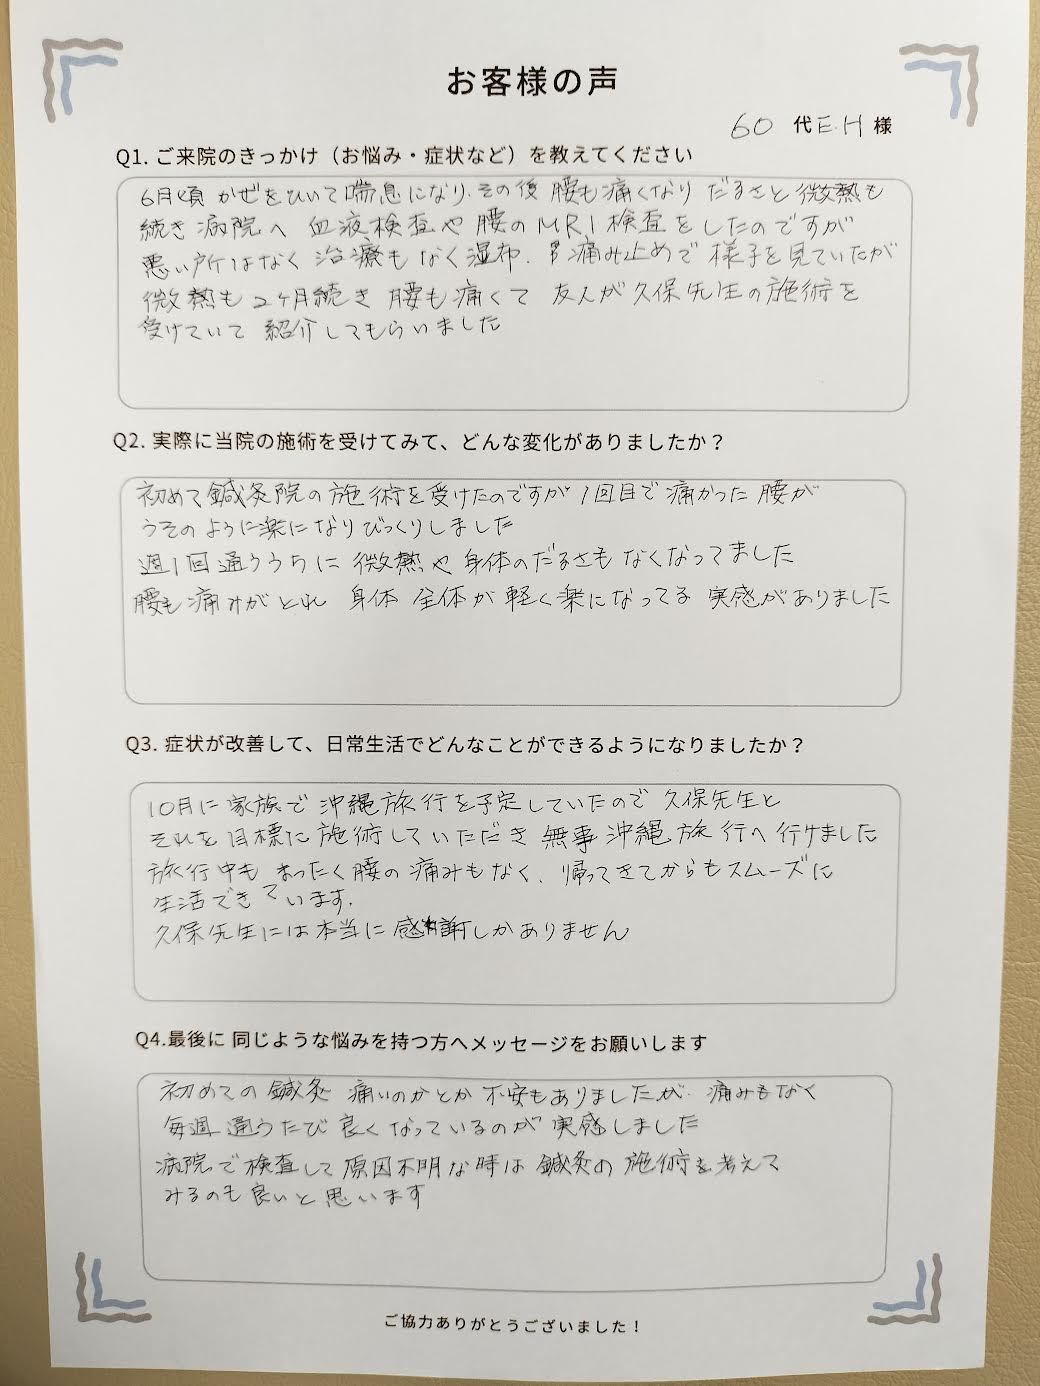 お客様の声
60 代 E.H 様
Q1. ご来院のきっかけ（お悩み・症状など）を教えてください
6月頃 かぜをひいて喘息になり、その後 腰も痛くなり だるさと 微熱も
続き 病院へ 血液検査や 腰のMRI検査をしたのですが
悪い所はなく 治療もなく湿布、痛み止めで 様子を見ていたが
微熱も 2ヶ月続き 腰も痛くて 友人が久保先生の施術を
受けていて 紹介してもらいました
Q2. 実際に当院の施術を受けてみて、どんな変化がありましたか？
初めて鍼灸院の施術を受けたのですが 1回目で 痛かった 腰が
うそのように楽になりびっくりしました
週1回通ううちに 微熱や 身体のだるさも なくなってました
腰も 痛みがとれ 身体 全体が 軽く楽になってる 実感がありました
Q3. 症状が改善して、日常生活でどんなことができるようになりましたか？
10月に 家族で 沖縄旅行を予定していたので 久保先生と
それを目標に 施術していただき 無事 沖縄 旅行へ 行けました
旅行中も まったく腰の 痛みもなく、帰ってきてからもスムーズに
生活できています。
久保先生には本当に 感謝しかありません
Q4.最後に 同じような悩みを持つ方へメッセージをお願いします
初めての 鍼灸 痛いのかとか 不安もありましたが、痛みもなく
毎週 通うたび 良くなっているのが 実感しました
病院で検査して 原因不明な時は 鍼灸の 施術を考えて
みるのも良いと思います
ご協力ありがとうございました！